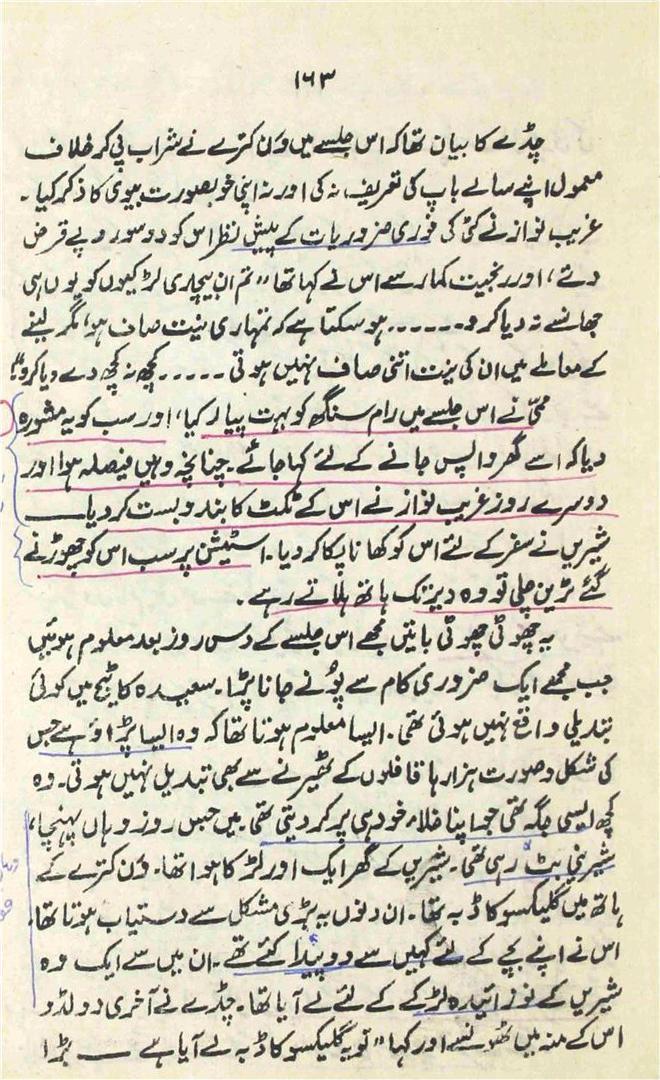 ۱۶۳
چڈے کا بیان تھا کہ اس جلسے میں ون کترے نے شراب پی کر خلاف
معمول اپنے سالے باپ کی تعریف نہ کی اور نہ اپنی خوبصورت بیوی کا ذکر کیا ۔
غریب نواز نے کٹی کی فوری ضروریات کے پیش نظر اس کو دو سو روپے قرض
دئے ، اور رنجیت کمار سے اس نے کہا تھا ” تم ان بیچاری لڑکیوں کو یوں ہی
جھانسے نہ دیا کرو ۔۔۔۔۔۔ ہو سکتا ہے کہ تمہاری نیت صاف ہو ، مگر لینے
کے معاملے میں ان کی نیت اتنی صاف نہیں ہوتی ۔۔۔۔۔ کچھ نہ کچھ دے دیا کرو !“
ممّی نے اس جلسے میں رام سنگھ کو بہت پیار کیا ، اور سب کو یہ مشورہ
دیا کہ اسے گھر واپس جانے کے لئے کہا جائے ۔ چنانچہ وہیں فیصلہ ہوا اور
دوسرے روز غریب نواز نے اس کے ٹکٹ کا بندوبست کر دیا ـــــ
شیریں نے سفر کے لئے اس کو کھانا پکا کر دیا ۔ اسٹیشن پر سب اس کو چھوڑنے
گئے ٹرین چلی تو وہ دیر تک ہاتھ ہلاتے رہے ۔
یہ چھوٹی چھوٹی باتیں مجھے اس جلسے کے دس روز بعد معلوم ہوئیں
جب مجھے ایک ضروری کام سے پُونے جانا پڑا ۔ سعیدہ کاٹیج میں کوئی
تبدیلی واقع نہیں ہوئی تھی ۔ ایسا معلوم ہوتا تھا کہ وہ ایسا پڑاؤ ہے جس
کی شکل و صورت ہزار ہا قافلوں کے ٹھیرنے سے بھی تبدیل نہیں ہوتی ۔ وہ
کچھ ایسی جگہ تھی جو اپنا خلاء خود ہی پر کر دیتی تھی ۔ میں جس روز وہاں پہنچا ،
شیرینی بٹ رہی تھی ۔ شیریں کے گھر ایک اور لڑکا ہوا تھا ۔ ون کترے کے
ہاتھ میں گلیکسو کا ڈبہ تھا ۔ ان دنوں یہ بڑی مشکل سے دستیاب ہوتا تھا ،
اس نے اپنے بچے کے لئے کہیں سے دو پیدا کئے تھے ۔ ان میں سے ایک وہ
شیریں کے نوزائیدہ لڑکے کے لئے لے آیا تھا ۔ چڈے نے آخری دو لڈو
اس کے منہ میں ٹھونسے اور کہا ” تو یہ گلیکسو کا ڈبہ لے آیا ہے ـــــ بڑا